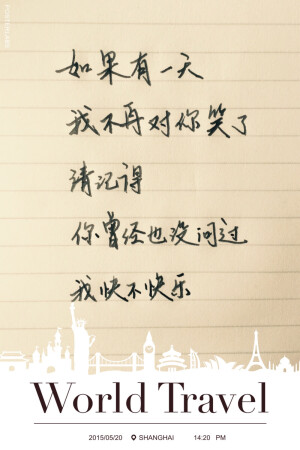 如果有一天
我不再对你笑了
请记得
你曾经也没问过
我快不快乐
World Travel
2015/05/20 SHANGHAI 14:20 PM